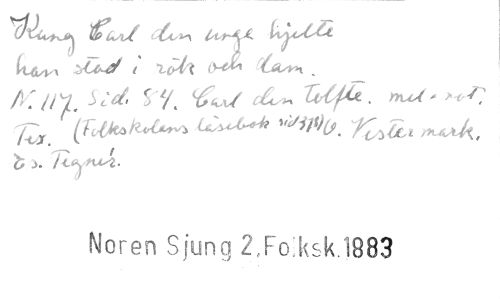 Kung Carl den unge hjelte
han stod i rök och dam.
N. 117. Sid. 84. Carl den Tolfte. mel. not.
Tex. (Folkskolans läsebok sid V. Vestermark.
Es. Tegnér.
Noren Sjung 2, Folksk. 1883